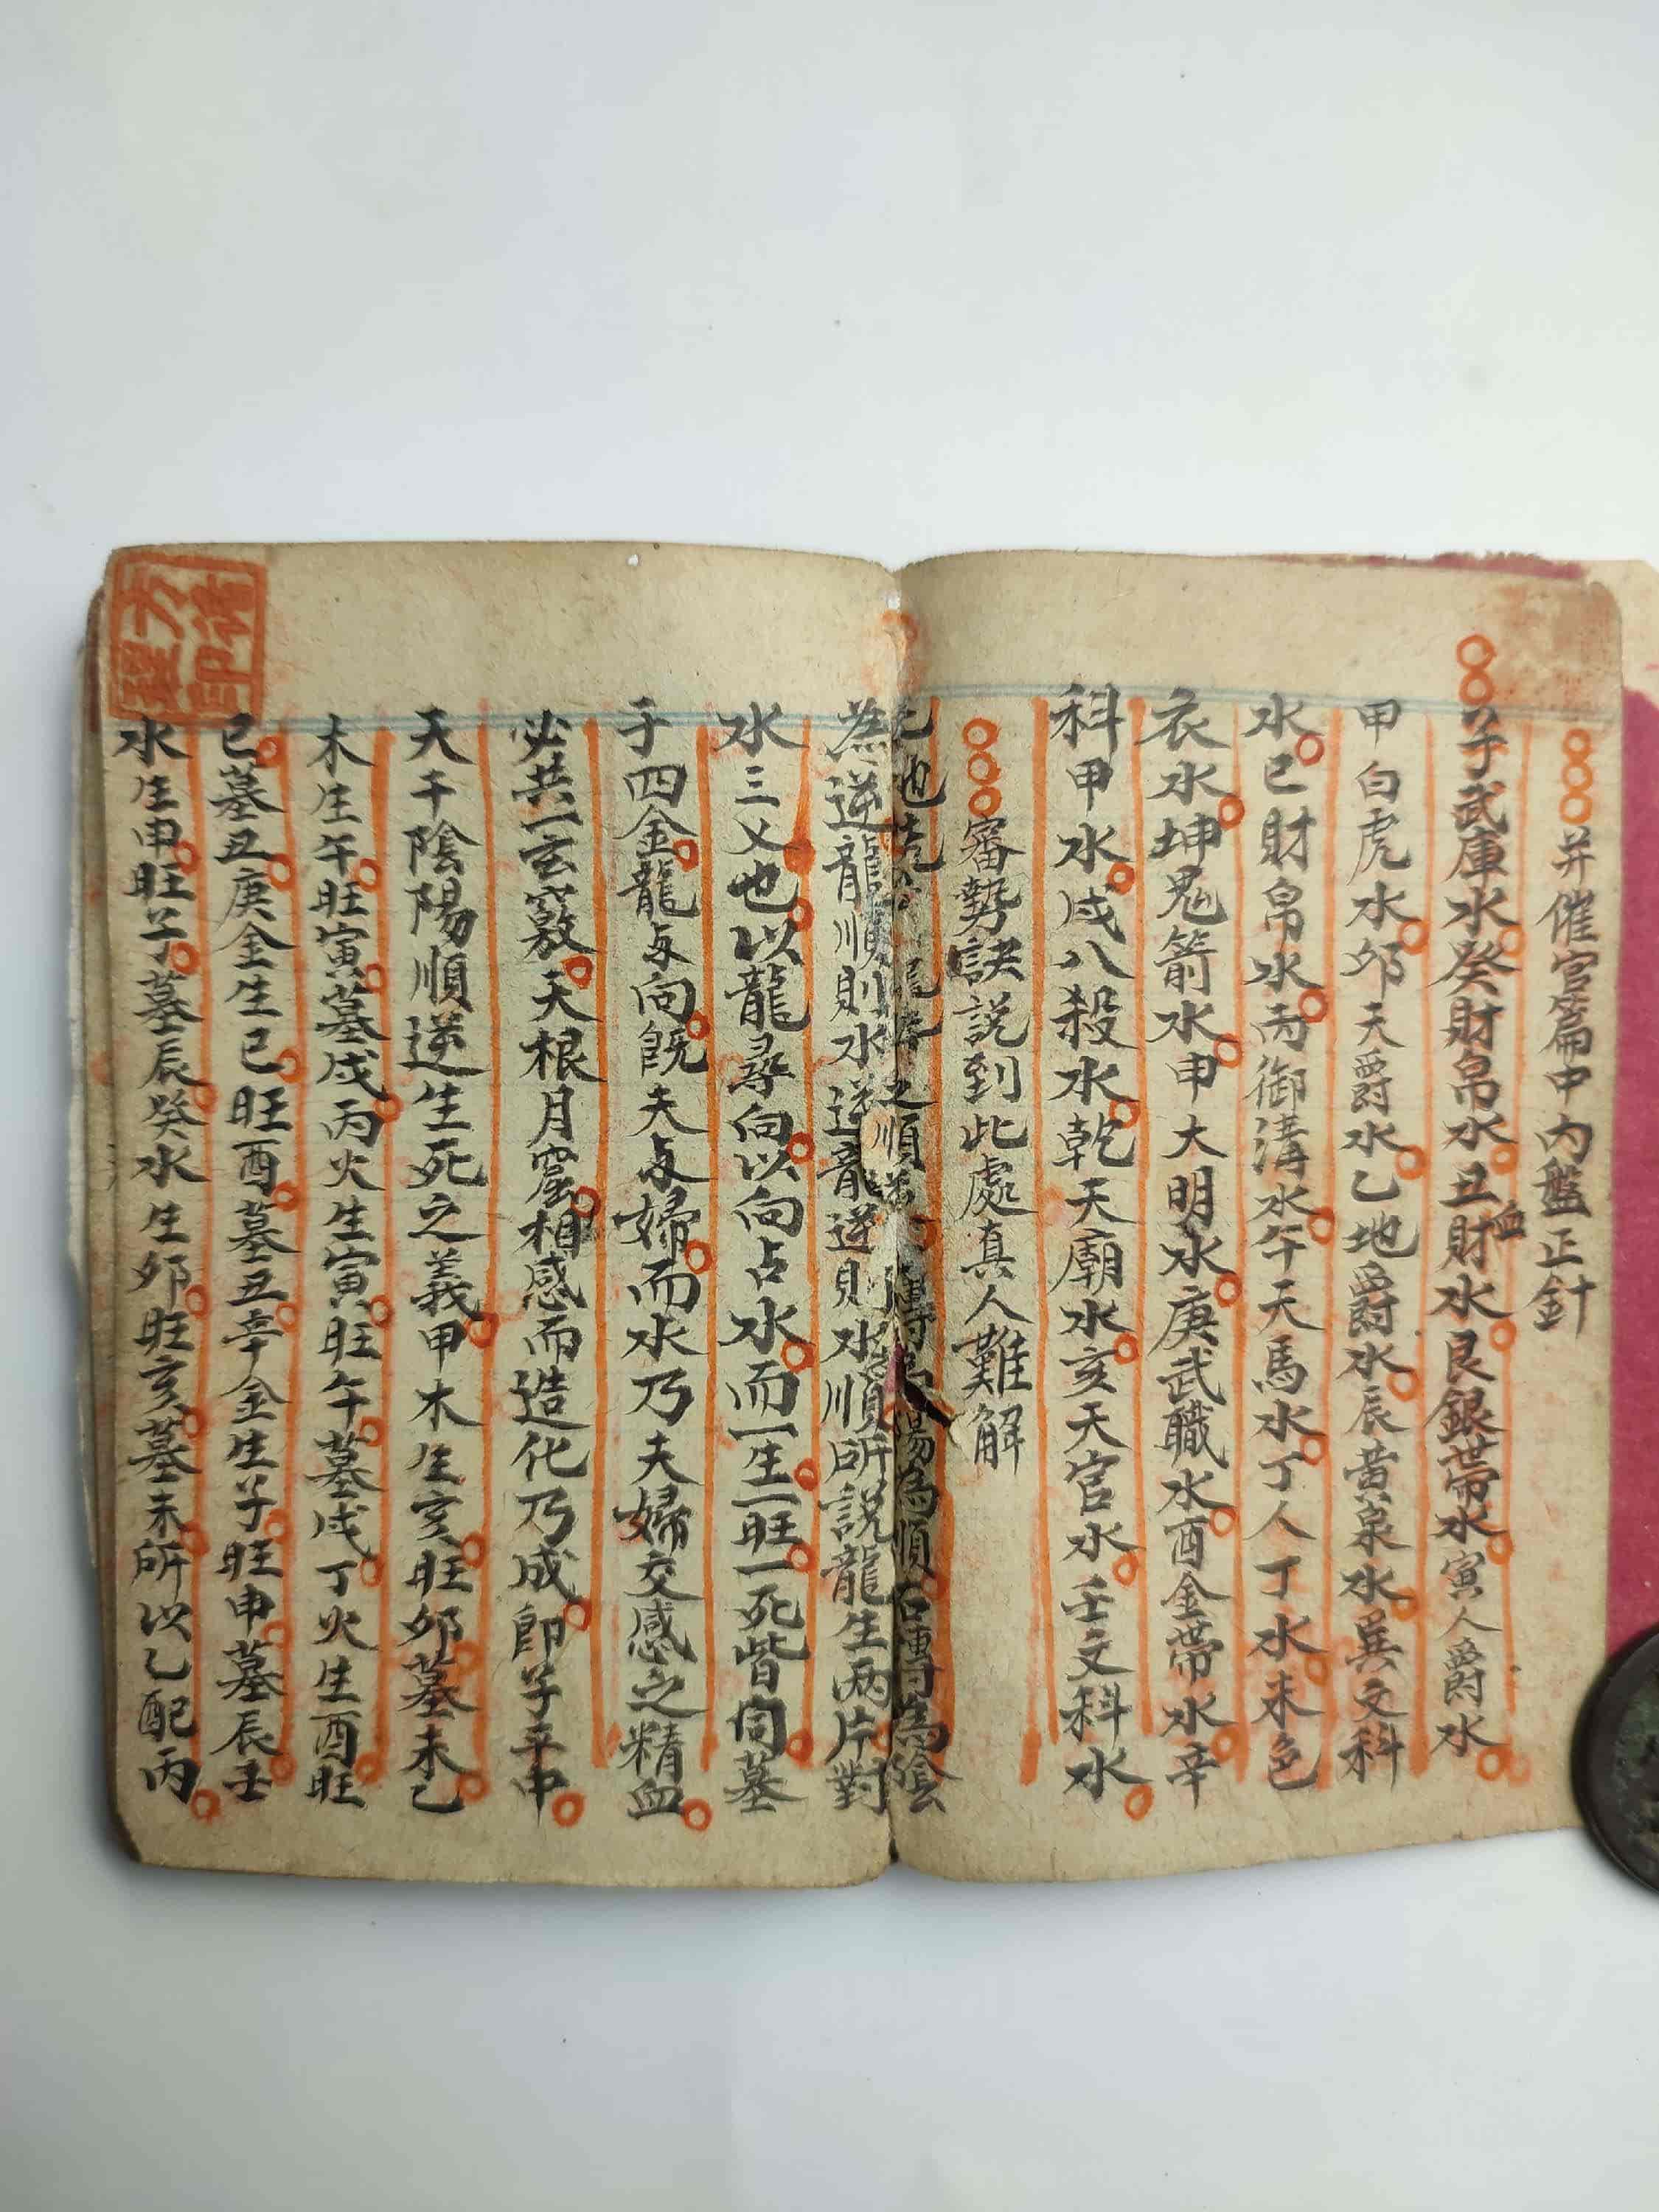 并催官篇中內盤正針
子武庫水癸財帛水丑財血水艮銀帶水寅人爵水
甲白虎水卯天爵水乙地爵水辰黃泉水巽文科
水巳財帛水丙御溝水午天馬水丁人丁水未色
衣水坤鬼箭水申大明水庚武職水酉金帶水辛
科甲水戌八殺水乾天廟水亥天官水壬文科水
審勢訣說到此處真人難解
之順 陽為順右轉為陰
為逆龍順則水逆龍逆則水順所説龍生两片對
水三义也以龍尋向以向占水而一生一旺一死皆同墓
于四金龍与向既夫与婦而水乃夫婦交感之精血
必共一玄竅天根月窟相感而造化乃成即子平中
天干陰陽順逆生死之義甲木生亥旺卯墓未乙
木生午旺寅墓戌丙火生寅旺午墓戌丁火生酉旺
巳墓丑庚金生巳旺酉墓丑辛金生子旺申墓辰壬
水生申旺子墓辰癸水生卯旺亥墓未所以乙配丙